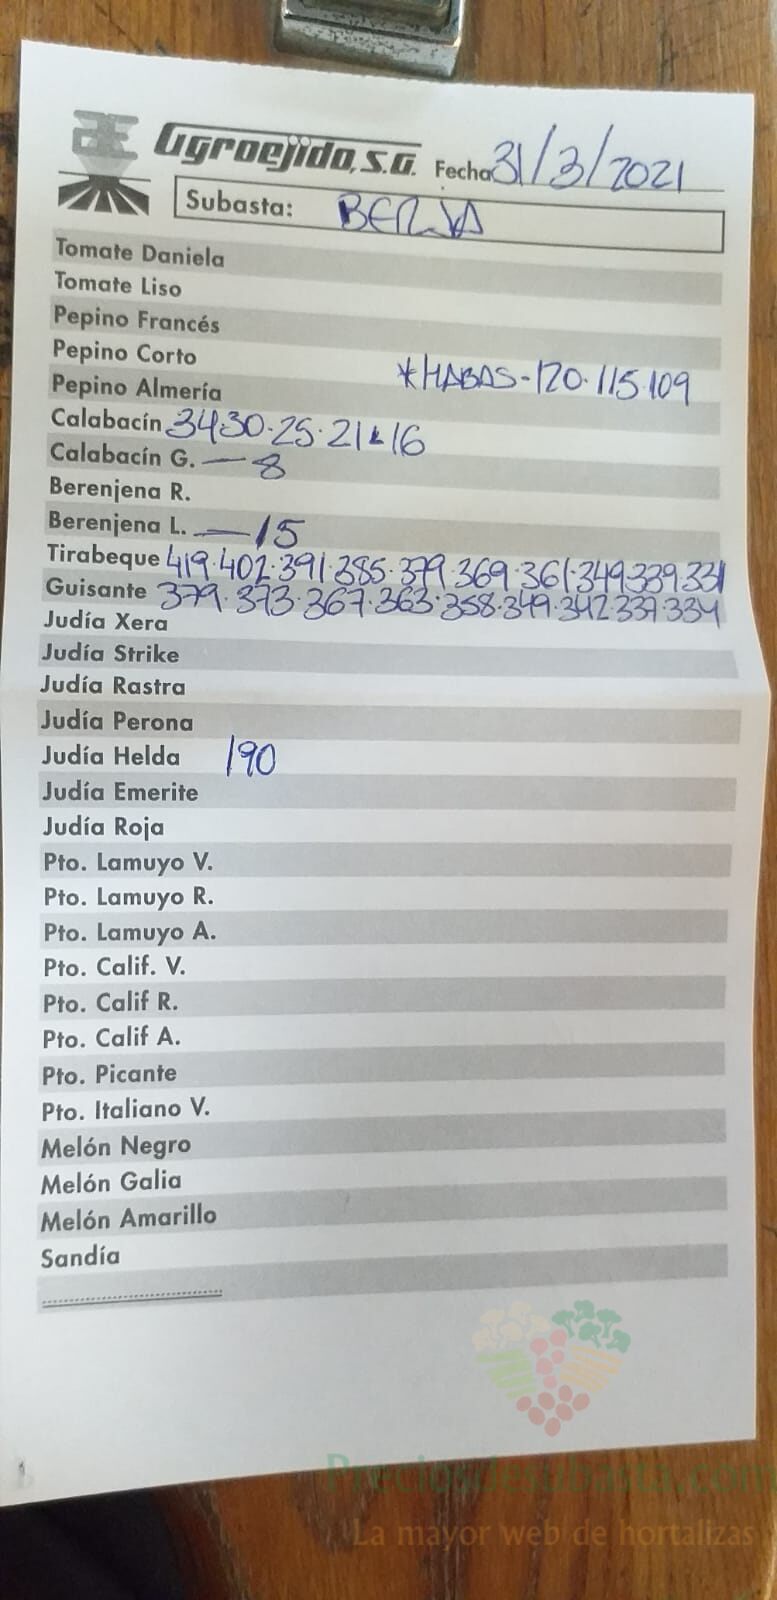 Agroejido, S.A. Fecha 31/3/2021
Subasta: BERJA
Tomate Daniela
Tomate Liso
Pepino Francés
Pepino Corto
*HABAS-120·115·109
Pepino Almería
Calabacín 34·30·25·21·16
Calabacín G. — 8
Berenjena R.
Berenjena L. — 15
Tirabeque 419·402·391·385·379·369·361·349·339·331
Guisante 379·373·367·363·358·349·342·337·334
Judía Xera
Judía Strike
Judía Rastra
Judía Perona
Judía Helda 190
Judía Emerite
Judía Roja
Pto. Lamuyo V.
Pto. Lamuyo R.
Pto. Lamuyo A.
Pto. Calif. V.
Pto. Calif R.
Pto. Calif A.
Pto. Picante
Pto. Italiano V.
Melón Negro
Melón Galia
Melón Amarillo
Sandía
Preciosdesubasta.com
La mayor web de hortalizas